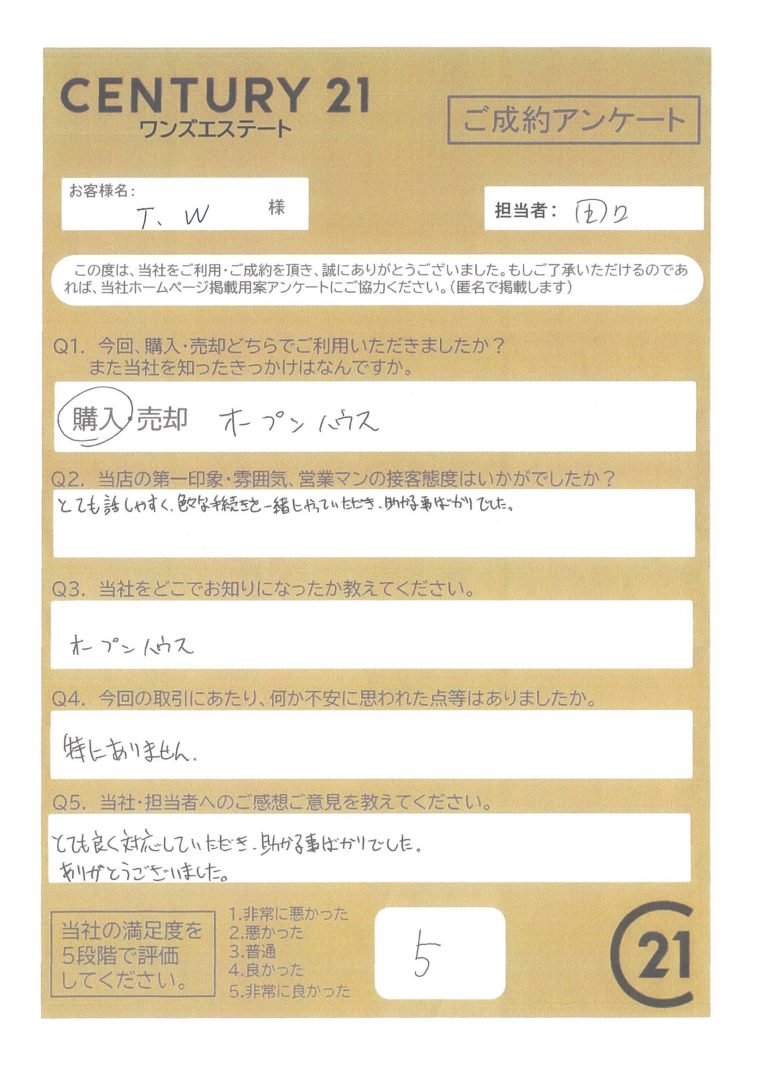 CENTURY 21
ワンズエステート
ご成約アンケート
お客様名:
T. W 様
担当者:
この度は、当社をご利用・ご成約を頂き、誠にありがとうございました。もしご了承いただけるのであ
れば、当社ホームページ掲載用案アンケートにご協力ください。(匿名で掲載します)
Q1. 今回、購入・売却どちらでご利用いただきましたか?
また当社を知ったきっかけはなんですか。
購入・売却 オープンハウス
Q2. 当店の第一印象・雰囲気、営業マンの接客態度はいかがでしたか?
とても話しやすく、色々な手続きを一緒にやっていただき、助かる事ばかりでした。
Q3. 当社をどこでお知りになったか教えてください。
オープンハウス
Q4. 今回の取引にあたり、何か不安に思われた点等はありましたか。
特にありません.
Q5. 当社・担当者へのご感想ご意見を教えてください。
とても良く対応していただき、助かる事ばかりでした。
ありがとうございました。
当社の満足度を
5段階で評価
してください。
1.非常に悪かった
2.悪かった
3.普通
4.良かった
5.非常に良かった
5
C21